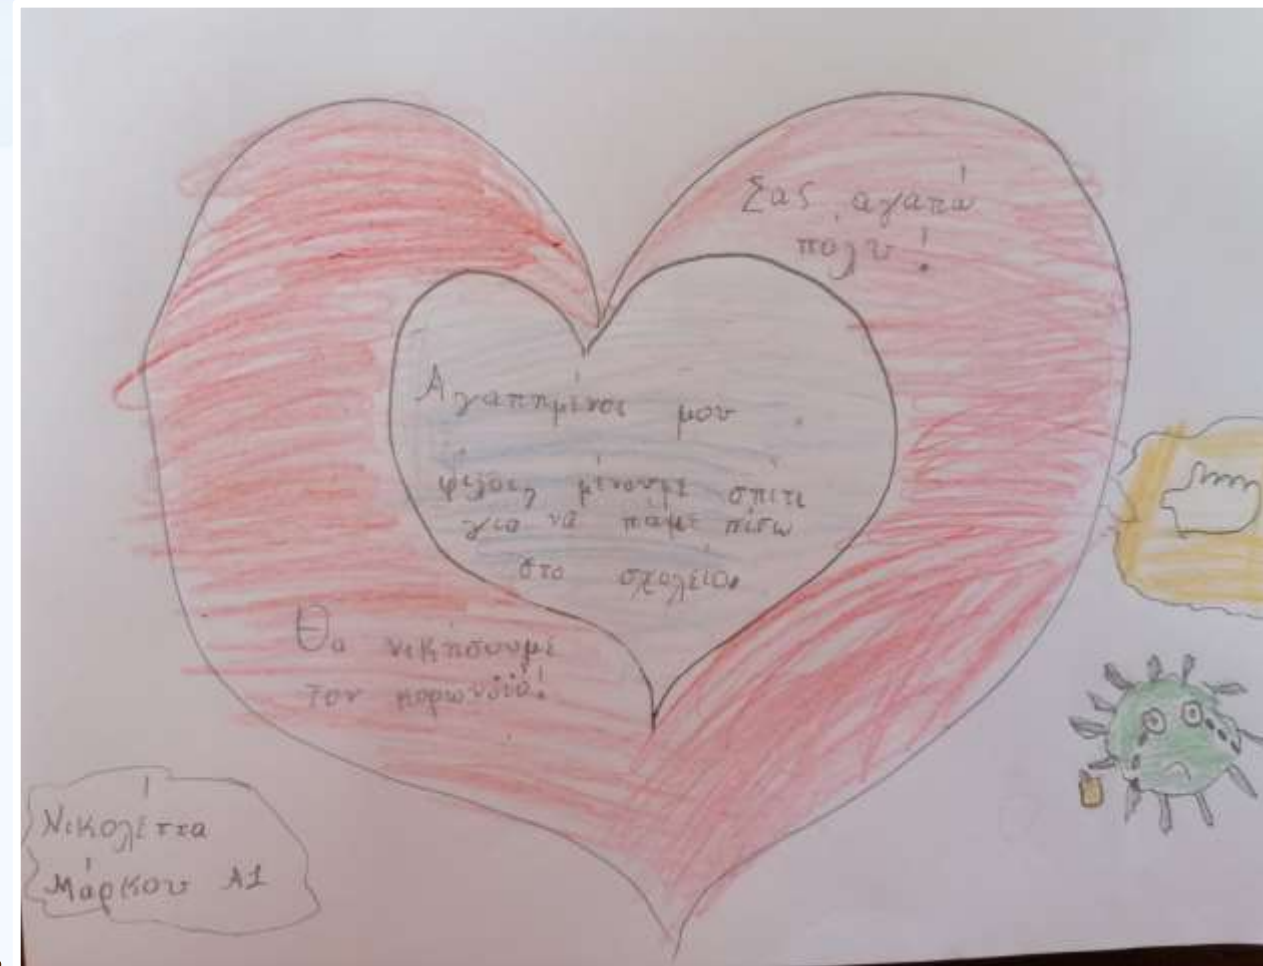 Σας αγαπώ
πολυ!
Αγαπημένοι μου
φίλοι, μένουμε σπίτι
για να πάμε πίσω
στο σχολείο.
Θα νικήσουμε
τον κορωνοϊό!
Νικολέττα
Μάρκου Α1